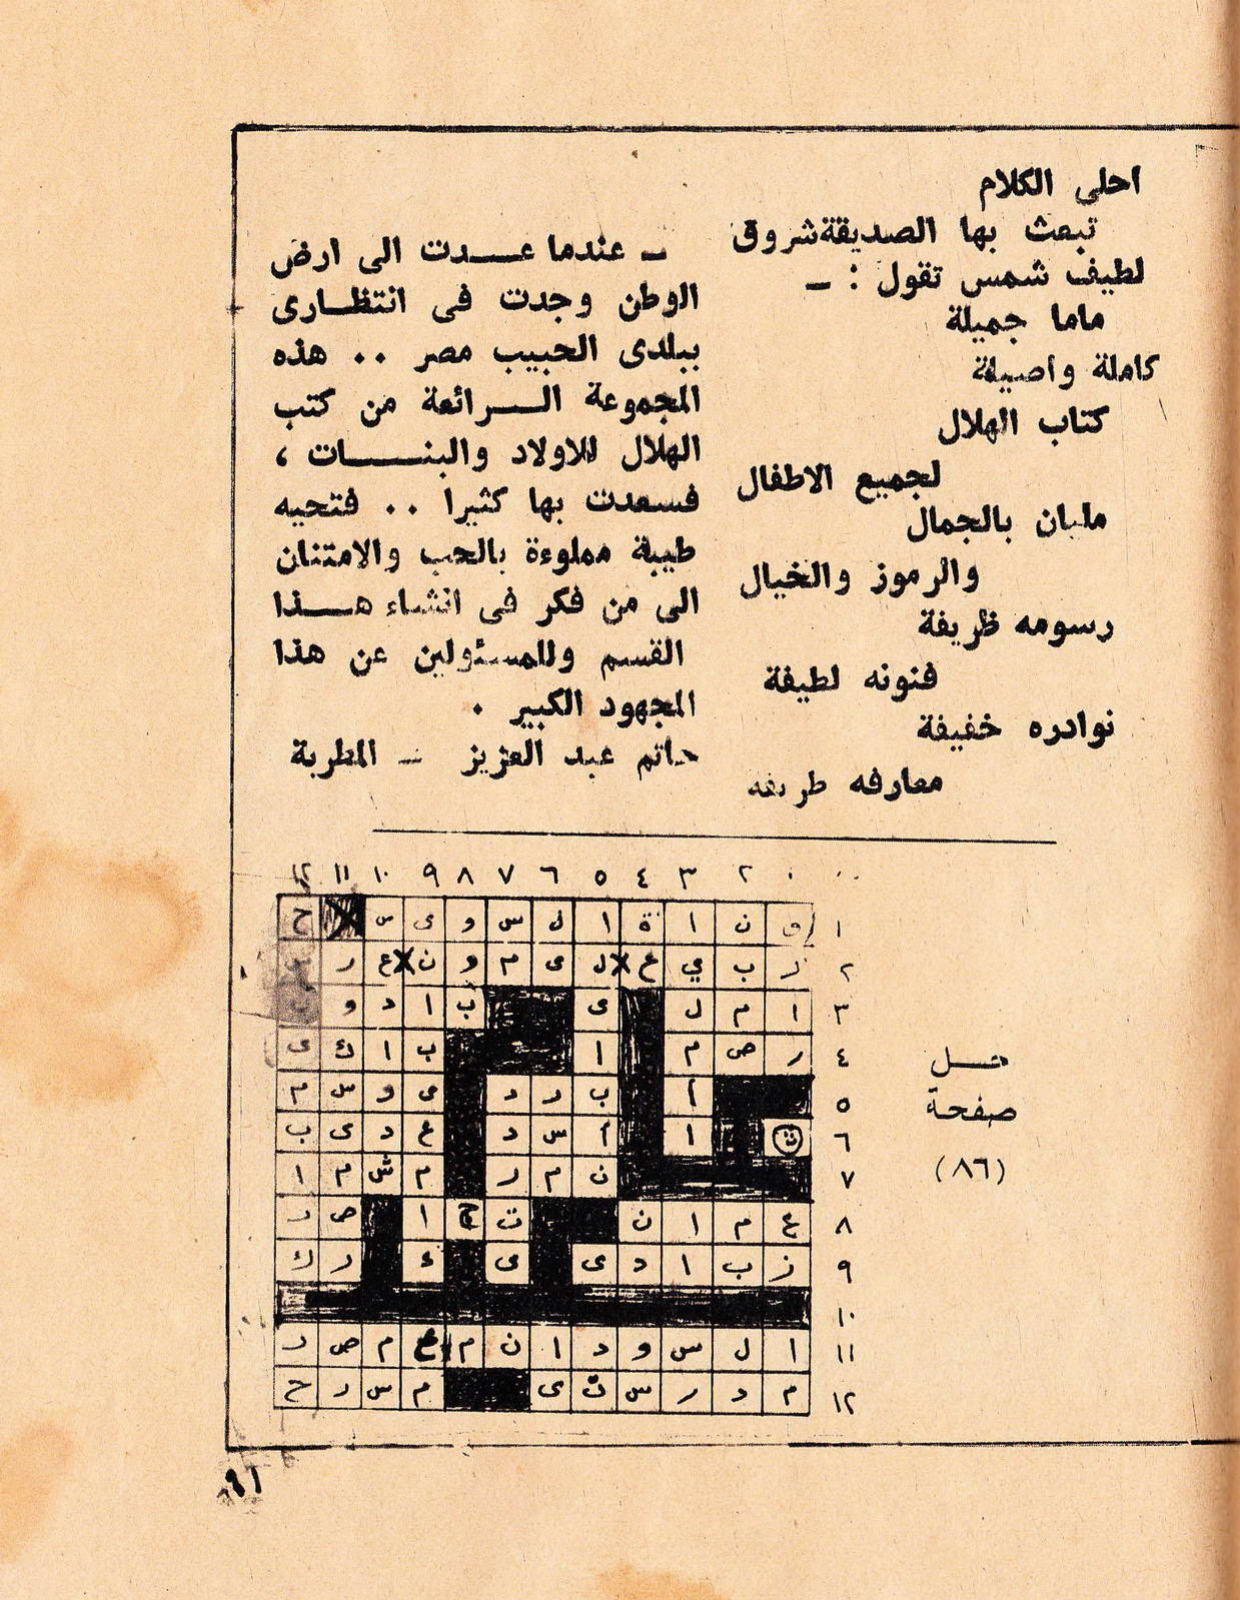 احلى الكلام
تبعث بها الصديقة شروق
لطيف شمس تقول : ـ
ماما جميلة
كاملة واصيلة
كتاب الهلال
لجميع الاطفال
مليان بالجمال
والرموز والخيال
رسومه ظريفة
فنونه لطيفة
نوادره خفيفة
معارفه طريفه
ـ عندما عدت الى ارض
الوطن وجدت فى انتظارى
ببلدى الحبيب مصر .. هذه
المجموعة الرائعة من كتب
الهلال للاولاد والبنات ،
فسعدت بها كثيرا .. فتحيه
طيبة مملوءة بالحب والامتنان
الى من فكر فى انشاء هذا
القسم وللمسئولين عن هذا
المجهود الكبير .
حاتم عبد العزيز ـ المطرية
حل
صفحة
(٨٦)
٢ ٣ ٤ ٥ ٦ ٧ ٨ ٩ ١٠ ١١ ١٢
١ ق ن ا ة ا ل س و ى س ح
٢ ر ب ي ع ل ى م و ن ع ر
٣ ا م ل ى ب ا د و
٤ ر ص م ا ب ا ك ى
٥ أ ب ر د ى و س م
٦ ث ا أ س د ع د ى ب
٧ ن م ر م ش م ا
٨ ع م ا ن ت ج ا ص ر
٩ ز ب ا د ى ى ء ر ك
١٠
١١ ا ل س و د ا ن م ع م ص ر
١٢ م د ر س ت ى م س ر ح
٩١